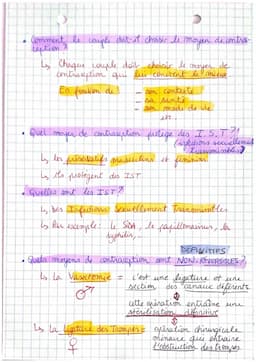 • Comment le couple doit-il choisir le moyen de contra-
ception ?
↳ Chaque couple doit choisir le moyen de
contraception qui lui convient le mieux
En fonction de
- son contexte
- sa santé
- son mode de vie
etc.
• Quel moyen de contraception protège des I.S.T ?
(infections sexuellement
transmissibles)
↳ les préservatifs masculins et féminins
↳ Ils protègent des IST
• Quelles sont les IST ?
↳ Des Infections Sexuellement Transmissibles
↳ Par exemple : le SIDA, le papillomavirus, la
syphilis, ...
DEFINITIFS
• Quels moyens de contraception sont NON-REVERSIBLES ?
↳ La Vasectomie = c'est une ligature et une
section des canaux déférents
♂
cette opération entraîne une
stérilisation définitive
↳ La ligature des Trompes = opération chirurgicale
♀
mineure qui entraîne
l'obstruction des trompes